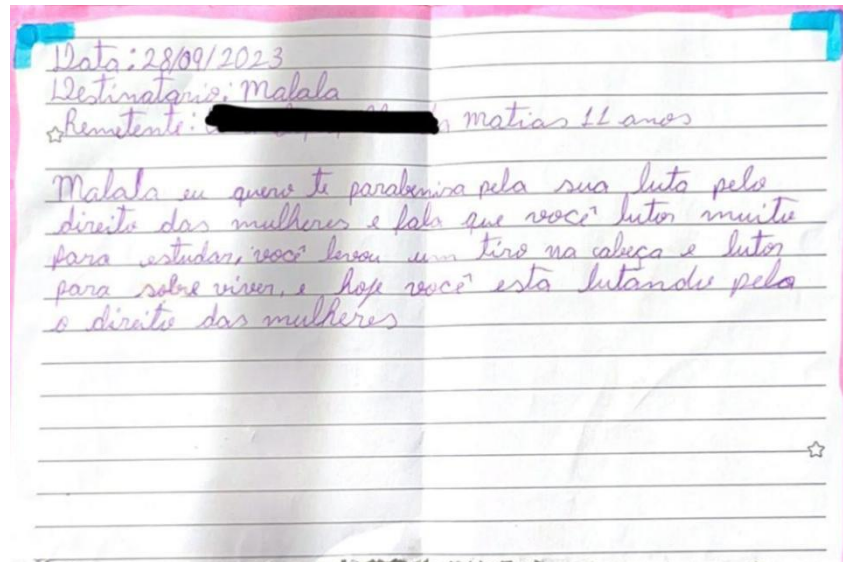 Data: 28/09/2023
Destinatario: Malala
Remetente: matias 11 anos
Malala eu quero te parabenisa pela sua luta pelo
direito das mulheres e fala que você lutor muito
para estudar, você levou um tiro na cabeça e lutor
para sobre viver, e hoje você esta lutando pela
o direito das mulheres